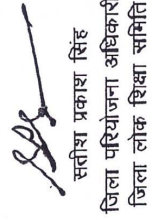 सतीश प्रकाश सिंह
जिला परियोजना अधिकारी
जिला लोक शिक्षा समिति